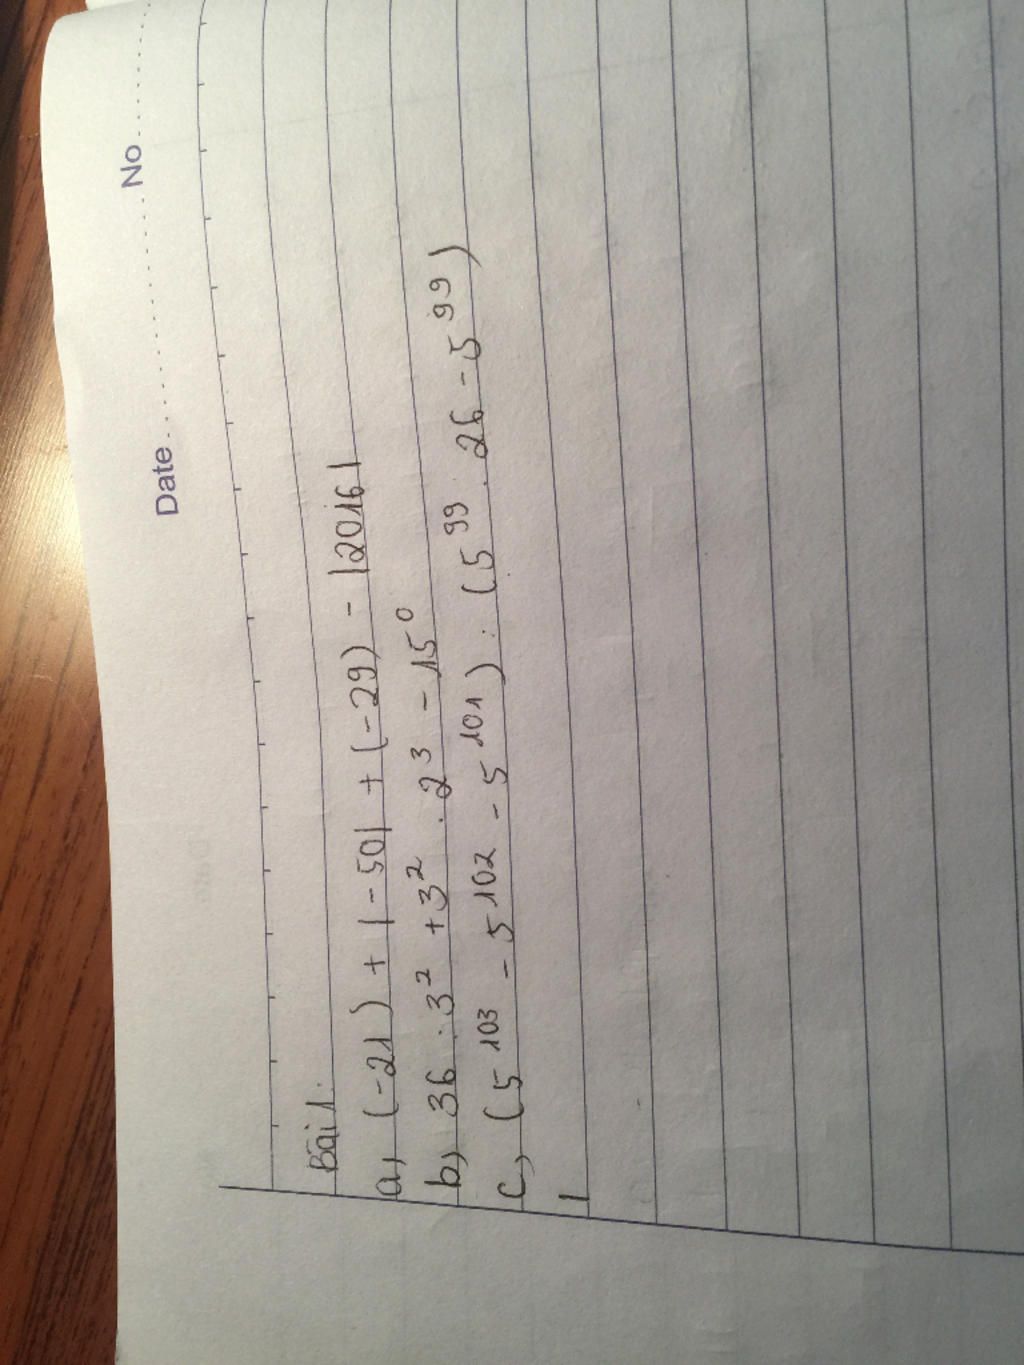 Date..................No..........
Bài 1:
a, (-21) + |-50| + (-29) - |2016|
b, 36 : 3² + 3² . 2³ - 15⁰
c, (5¹⁰³ - 5¹⁰² - 5¹⁰¹) : (5⁹⁹ . 26 - 5⁹⁹)